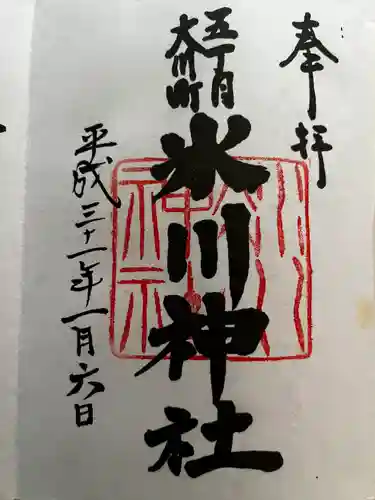 奉拝
五丁目
大川町
氷川神社
平成三十一年一月六日